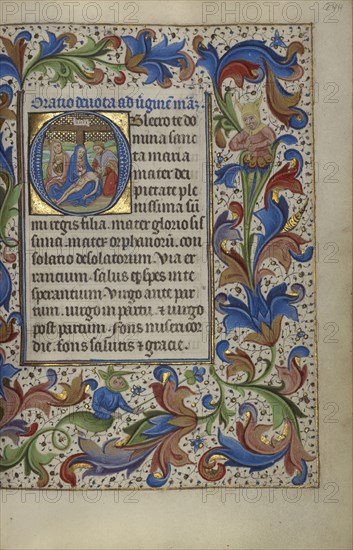 244
Oratio deuota ad uginē maē
Obsecro te do
mina sanc
ta maria
mater dei
pietate ple
nissima sū
mi regis filia. mater glorio sis
sima. mater orphanorū. con
solatio desolatorum. Via er
rancium. salus et spes in te
sperantium. Virgo ante par
tum. uirgo in partu. et uirgo
post partum. Fons miseri cor
die. fons salutis et gracie.